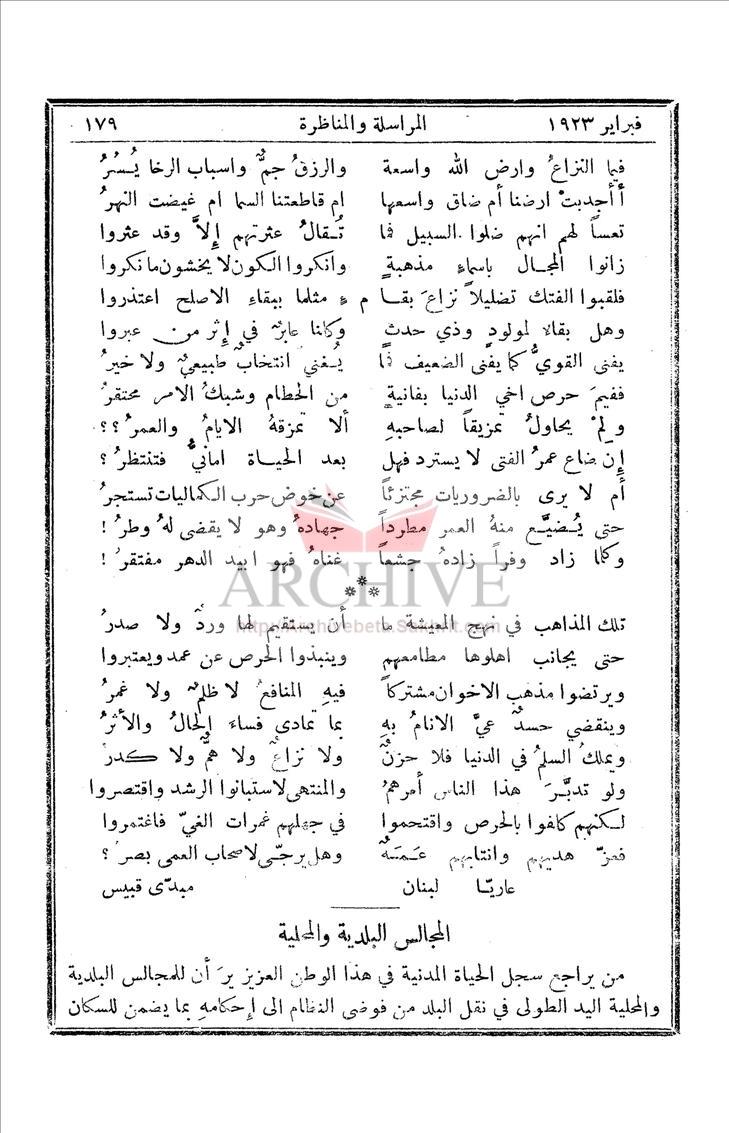 فبراير ١٩٢٣ المراسلة والمناظرة ١٧٩
فيما النزاعُ وارض الله واسعة والرزقُ جمٌّ واسباب الرخا يُسُرُ
أأجدبتْ ارضنا أم ضاق واسعها ام قاطعتنا السما ام غيضت النهرُ
تعساً لهم انهم ضلوا السبيل فما تُقالُ عثرتهم إلاَّ وقد عثروا
زانوا المجال باسماءٍ مذهبةٍ وانكروا الكون لا يخشون ما نكروا
فلقبوا الفتك تضليلاً نزاعَ بقا م ءٍ مثلما ببقاءِ الاصلح اعتذروا
وهل بقاءٌ لمولودٍ وذي حدثٍ وكلنا عابرٌ في إثر من عبروا
يفنى القويُّ كما يفنى الضعيف فما يُغني انتخابٌ طبيعيٌ ولا خيرُ
ففيمَ حرص اخي الدنيا بفانيةٍ من الحطام وشبكُ الامر محتقرُ
ولمْ يحاولُ تمزيقاً لصاحبهِ ألا تمزقهُ الايامُ والعمرُ؟؟
إن ضاع عمرُ الفتى لا يسترد فهل بعد الحياة امانيٌّ فتنتظرُ؟
أم لا يرى بالضروريات مجتزئاً عن خوض حرب الكماليات تستجرُ
حتى يُضيَّع منهُ العمر مطرداً جهادهُ وهو لا يقضى لهُ وطرُ!
وكلما زاد وفراً زادهُ جشعاً غناهُ فهو ابيد الدهر مفتقرُ!
ARCHIVE
***
http://Archivebeta.Sakhrit.com
تلك المذاهب في نهج المعيشة ما أن يستقيم لها وردٌ ولا صدرُ
حتى يجانب اهلوها مطامعهم وينبذوا الحرص عن عمد ويعتبروا
ويرتضوا مذهب الاخوان مشتركاً فيهِ المنافعُ لا ظلمٌ ولا غمرُ
وينقضي حسدٌ عيَّ الانامُ بهِ بما تمادى فساءَ الحالُ والأثرُ
ويملك السلمُ في الدنيا فلا حزنٌ ولا نزاعٌ ولا همٌّ ولا كدرُ
ولو تدبَّرَ هذا الناس أمرهمُ والمنتهى لاستبانوا الرشد واقتصروا
لكنهم كلفوا بالحرص واقتحموا في جهلهم غمرات الغيّ فاغتمروا
فعزَّ هديهم وانتابهم عَمَهٌ وهل يرجّى لاصحاب العمى بصرُ؟
عاريّا لبنان مبدّى قبيس
المجالس البلدية والمحلية
من يراجع سجل الحياة المدنية في هذا الوطن العزيز يرَ أن للمجالس البلدية
والمحلية اليد الطولى في نقل البلد من فوضى النظام الى إحكامهِ بما يضمن للسكان